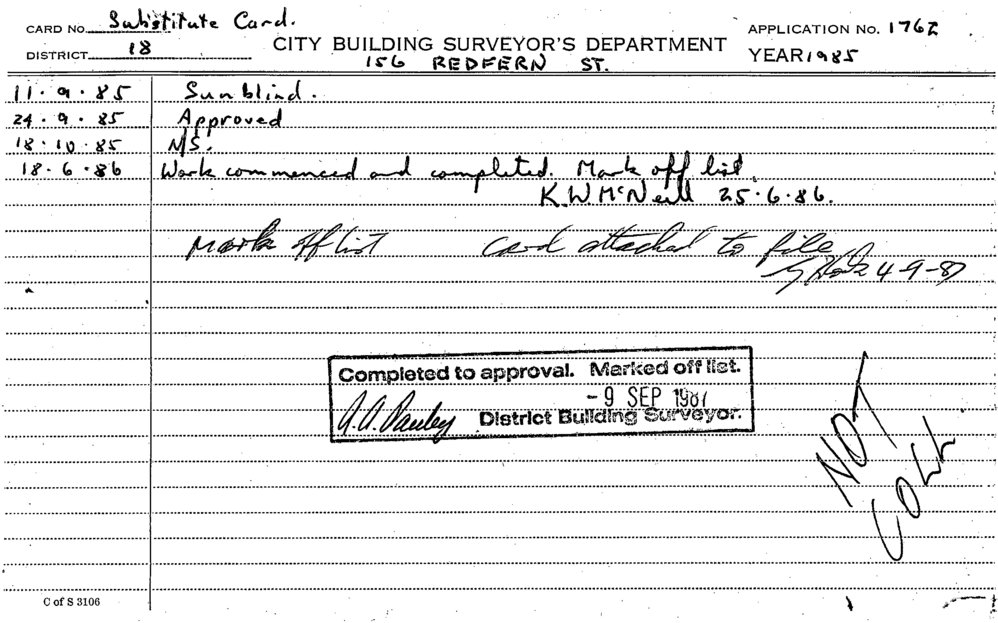 CARD No. Substitute Card.
DISTRICT 18
CITY BUILDING SURVEYOR'S DEPARTMENT
156 REDFERN ST.
APPLICATION No. 1762
YEAR 1985
11.9.85 Sunblind.
24.9.85 Approved
18.10.85 N/S.
18.6.86 Work commenced and completed. Mark off list.
K.W. McNeill 25.6.86.
Mark off list card attached to file
4-9-87
Completed to approval. Marked off list.
- 9 SEP 1987
A.A. Pauley District Building Surveyor.
NOT
C of S 3106